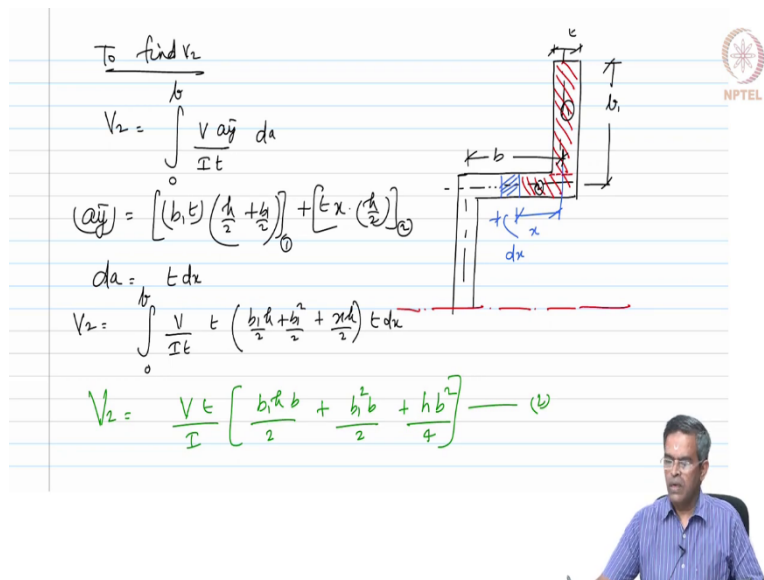 To find V2
V2 = ∫₀ᵇ V aȳ / It da
(aȳ) = [(b₁t)(h/2 + b₁/2)]① + [t x · (h/2)]②
da = t dx
V2 = ∫₀ᵇ V/It t (b₁h/2 + b₁²/2 + xh/2) t dx
V2 = Vt/I [b₁hb/2 + b₁²b/2 + hb²/4] —— (2)
t
b₁
①
b
②
x
dx
NPTEL